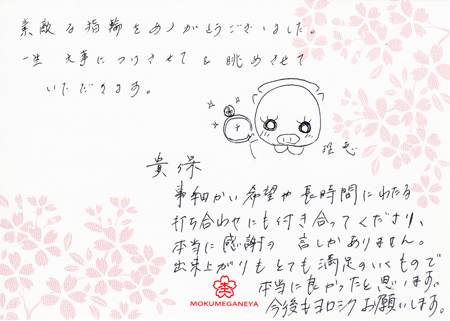 素敵な指輪をありがとうございました。
一生 大事につけさせて & 眺めさせて
いただきます。
理恵
貴保
事細かい希望や長時間にわたる
打ち合わせにも付き合ってくださり、
本当に感謝の言しかありません。
出来上がりもとても満足のいくもので
本当に良かったと思います。
今後もヨロシクお願いします。
MOKUMEGANEYA